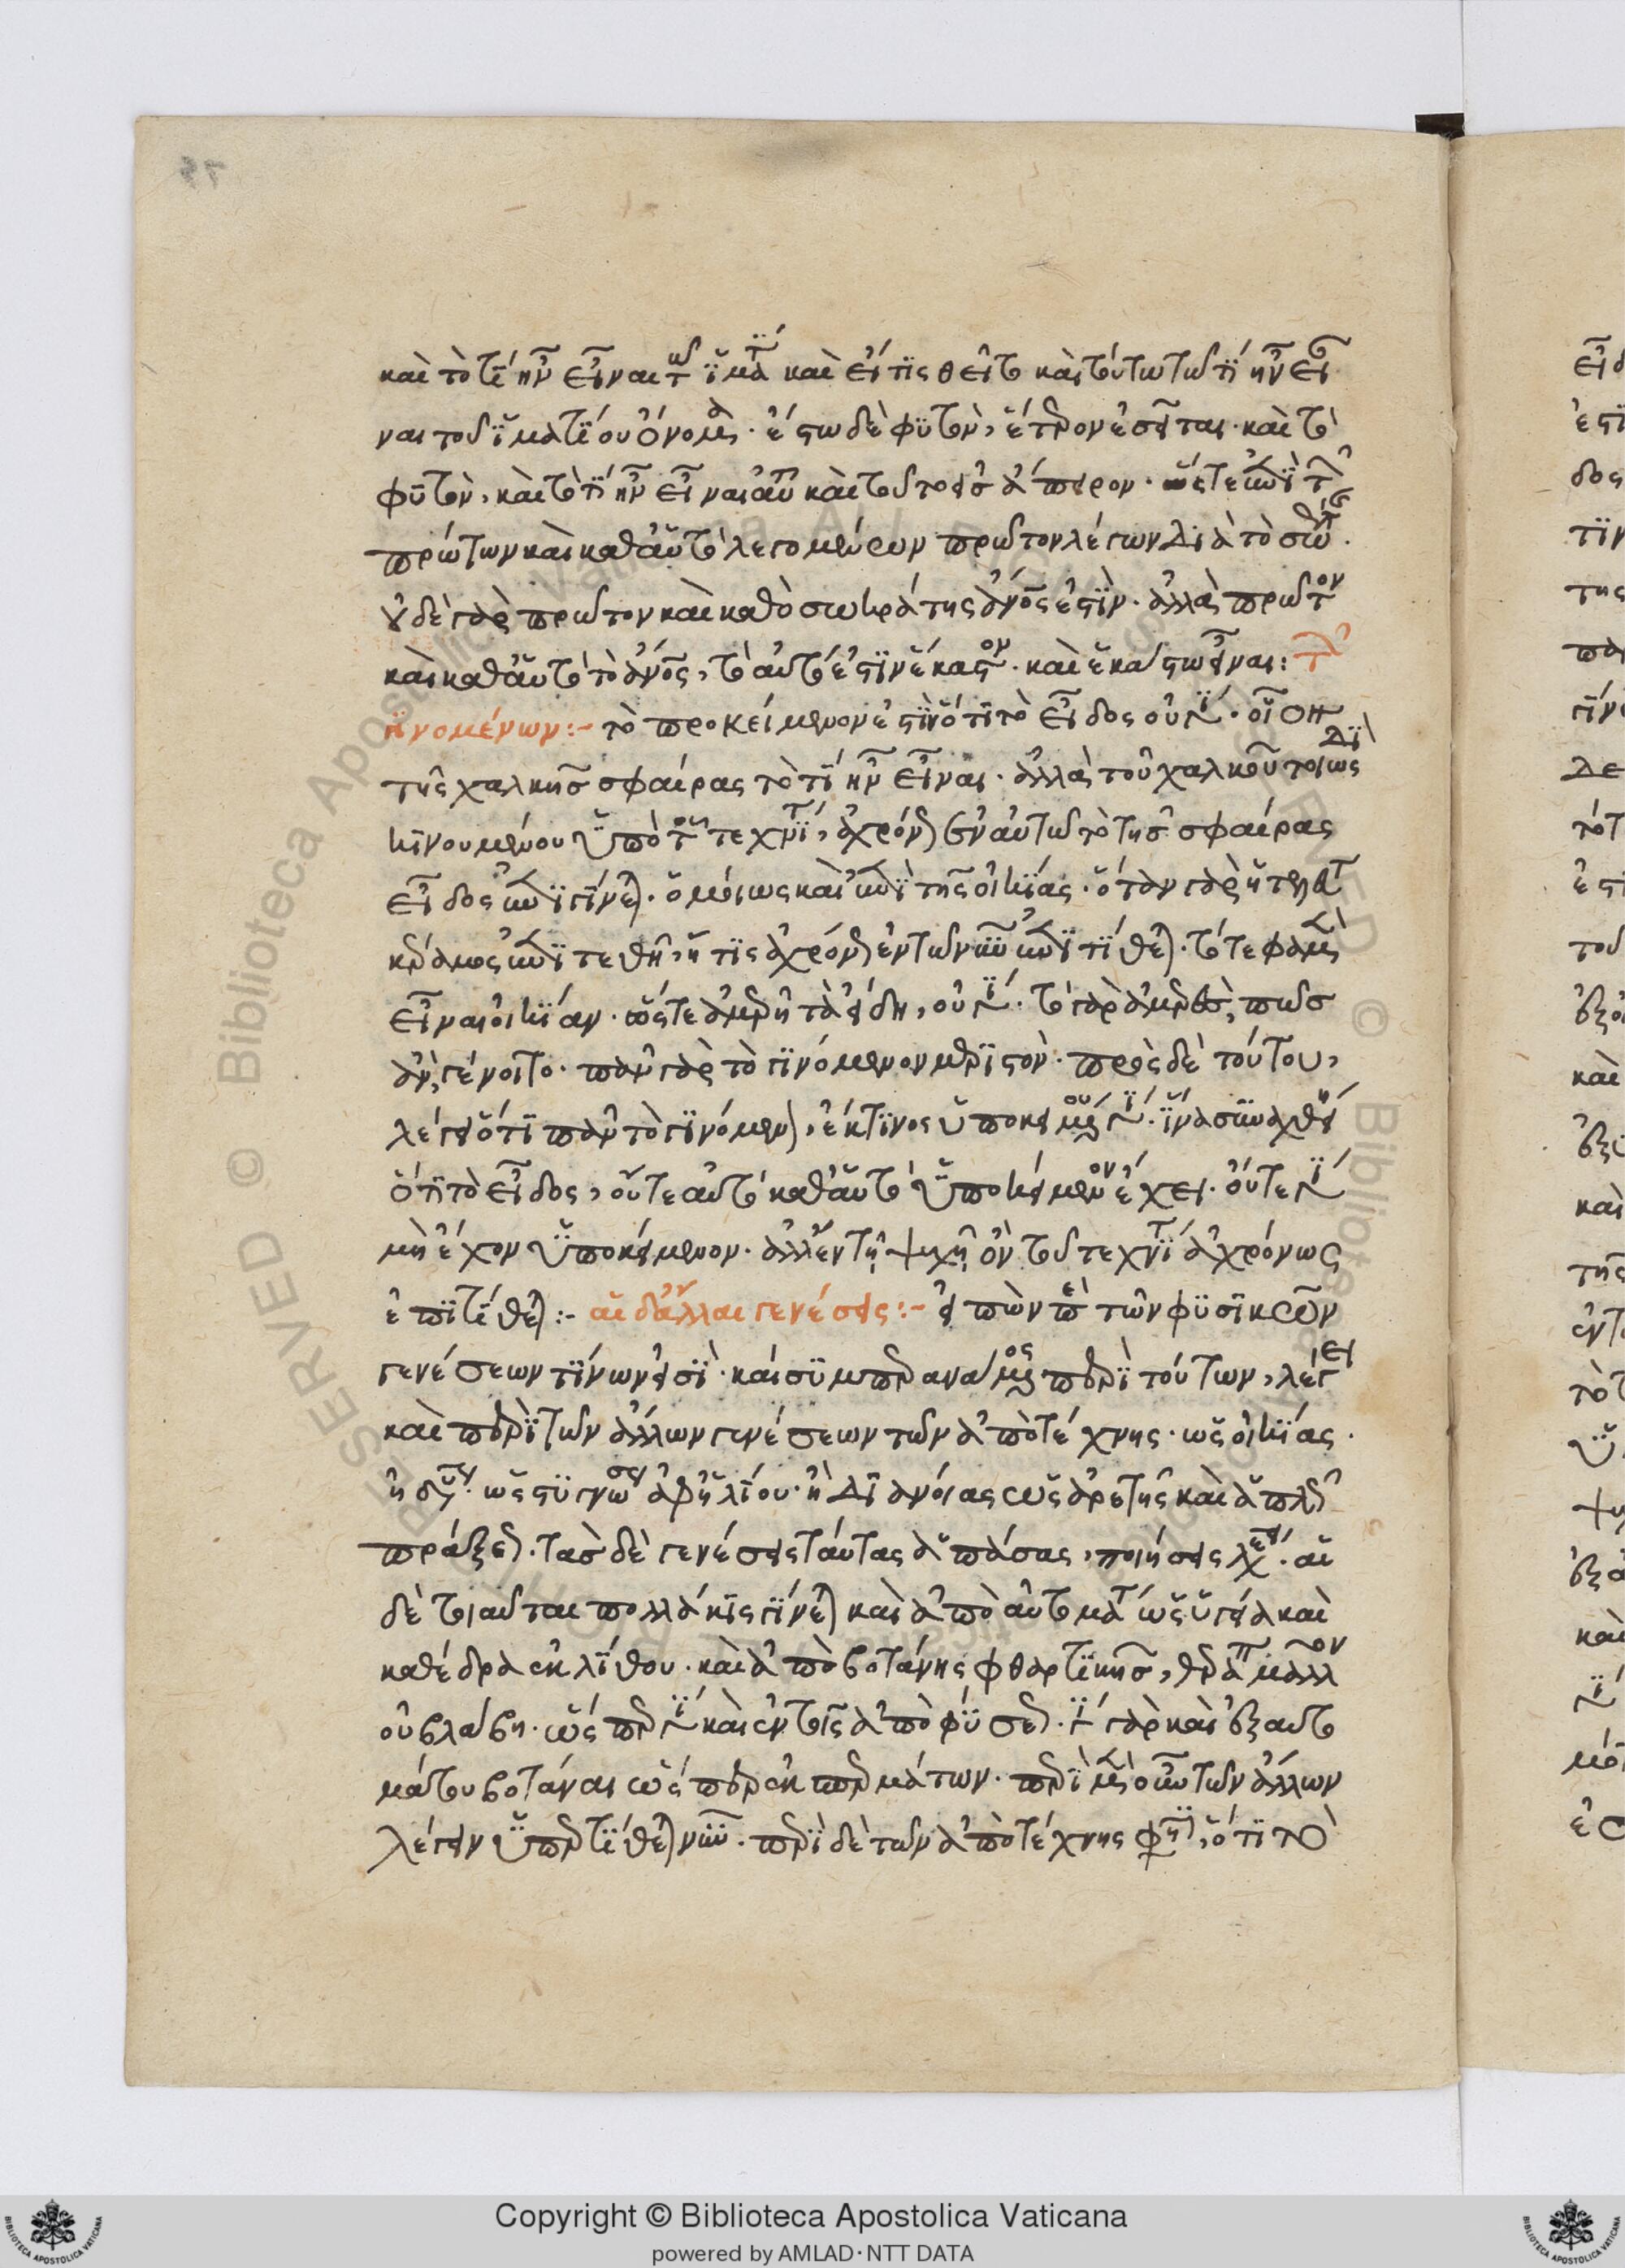 καὶ τὸ τί ἦν εἶναι τῶ ἱματίω καὶ εἴ τις θεῖτο καὶ τούτω τῶ τί ἦν εἶ
ναι τοῦ ἱματίου ὄνομα. ἔστω δὲ φυτὸν, ἕτερον ἔσται. καὶ τὸ
φυτὸν, καὶ τὸ τί ἦν εἶναι αὐτοῦ καὶ τοῦτο εἰς ἄπειρον. ὥστε ἐπὶ τῶν
πρώτων καὶ καθ' αὑτὸ λεγομένων πρῶτον λέγων διὰ τὸ
οὐδὲ γὰρ πρῶτον καὶ καθὸ σωκράτης ἄνος ἐστὶν. ἀλλὰ πρῶτον
καὶ καθ' αὑτὸ τὸ ἄνος, τὸ αὐτό ἐστιν ἕκαστον. καὶ ἑκάστω εἶναι: τῶν
γινομένων:- τὸ προκείμενον ἐστὶν ὅτι τὸ εἶδος οὐ γίνεται. οἷον
τῆς χαλκῆς σφαίρας τὸ τί ἦν εἶναι. ἀλλὰ τοῦ χαλκοῦ τοιῶσδι
κινουμένου ὑπὸ τοῦ τεχνίτου, ἀχρόνως ἐν αὐτῶ τὸ τῆς σφαίρας
εἶδος ἐπιγίνεται. ὁμοίως καὶ ἐπὶ τῆς οἰκίας. ὅταν γὰρ ἡ τελευταία
κέραμος ἐπιτεθῆ, ἥτις ἀχρόνως ἐν τῶ νῦν ἐπιτίθεται. τότε φαμὲν
εἶναι οἰκίαν. ὥστε ἀμερῆ τὰ εἴδη, οὐ γίνεται. τὸ γὰρ ἀμερὲς, πῶς
ἂν, γένοιτο. πᾶν γὰρ τὸ γινόμενον μεριστὸν. πρὸς δὲ τούτου,
λέγει ὅτι πᾶν τὸ γινόμενον, ἔκ τινος ὑποκειμένου γίνεται. ἵνα συναχθῆ
ὅτι τὸ εἶδος, οὔτε αὐτὸ καθ' αὑτὸ ὑποκείμενον ἔχει. οὔτε γίνεται
μὴ ἔχον ὑποκείμενον. ἀλλ' ἐν τῆ ψυχῆ ὂν τοῦ τεχνίτου ἀχρόνως
ἐπιτίθεται:- αἱ δ' ἄλλαι γενέσεις:- εἰπὼν περὶ τῶν φυσικῶν
γενέσεων τίνων εἰσὶ. καὶ συμπερανάμενος περὶ τούτων, λέγει
καὶ περὶ τῶν ἄλλων γενέσεων τῶν ἀπὸ τέχνης. ὡς οἰκίας.
ἢ ὡς ἡλίου. ἢ διανοίας ὡς ἀρετῆς καὶ ἁπλῶς
πράξεως. τὰς δὲ γενέσεις ταύτας ἁπάσας, ποιήσεις λέγει. αἱ
δὲ τοιαῦται πολλάκις γίνεται καὶ ἀπὸ αὐτομάτου ὡς ὑγεία καὶ
καθέδρα ἐκ λίθου. καὶ ἀπὸ βοτάνης φθαρτικῆς, θεραπεία μᾶλλον
οὐ βλάβη. ὥσπερ γίνεται καὶ ἐν τοῖς ἀπὸ φύσεως. γίνεται γὰρ καὶ ἐξ αὐτο
μάτου βοτάναι ὥσπερ ἐκ σπερμάτων. περὶ μὲν οὖν τῶν ἄλλων
λέγειν ὑπερτίθεται νῦν. περὶ δὲ τῶν ἀπὸ τέχνης φησὶν, ὅτι τὸ